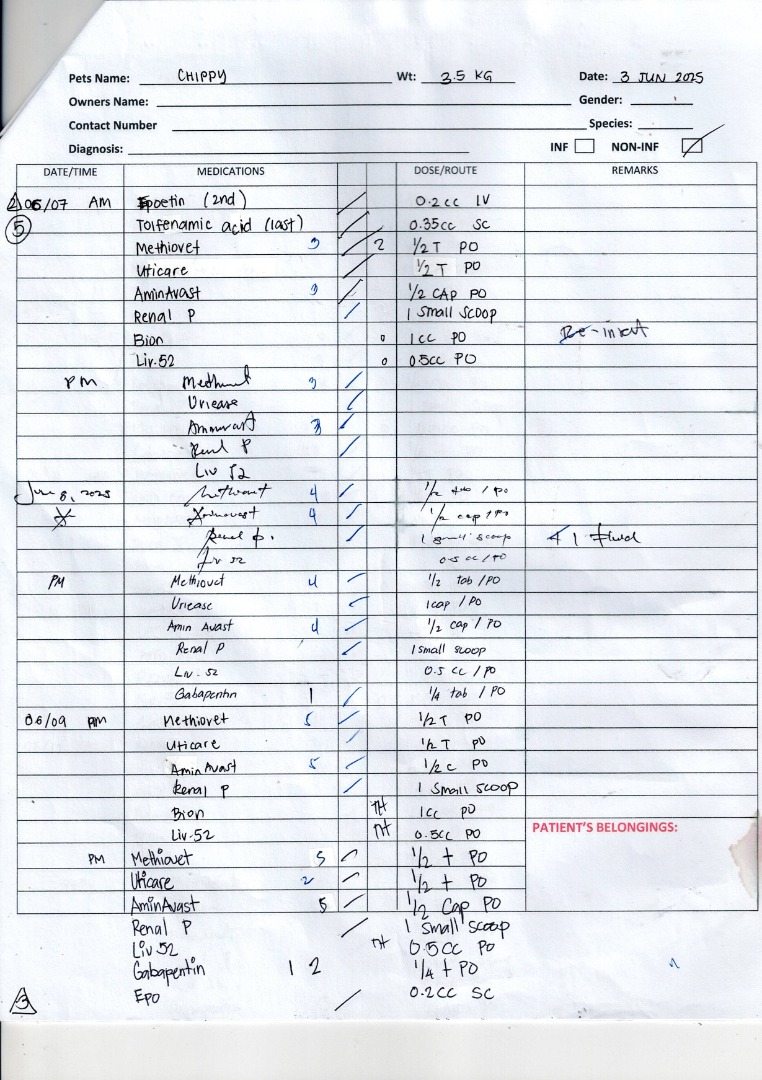 Pets Name: CHIPPY Wt: 3.5 KG Date: 3 JUN 2025
Owners Name: Gender:
Contact Number Species:
Diagnosis: INF NON-INF
DATE/TIME MEDICATIONS DOSE/ROUTE REMARKS
2 06/07 AM Epoetin (2nd) 0.2cc IV
5 Tolfenamic acid (last) 0.35cc SC
Methiovet 3 2 1/2 T PO
Uticare 1/2 T PO
AminAvast 3 1/2 CAP PO
Renal P 1 Small SCOOP
Bion 0 1cc PO Re-insert
Liv.52 0 0.5cc PO
PM 3
Uricase
3
Renal P
Liv 52
June 8, 2025 4 1/2 tab / PO
4 1/2 cap / PO
Renal p. 1 small scoop fluid
Liv 52 0.5 cc / PO
PM Methiovet 4 1/2 tab / PO
Uricase 1cap / PO
Amin Avast 4 1/2 cap / PO
Renal P 1 small scoop
Liv. 52 0.5 cc / PO
Gabapentin 1 1/4 tab / PO
06/09 AM Methiovet 5 1/2 T PO
Uticare 1/2 T PO
Amin Avast 5 1/2 C PO
Renal P 1 Small scoop
Bion NH 1cc PO
Liv-52 NH 0.5cc PO
PATIENT'S BELONGINGS:
PM Methiovet 5 1/2 t PO
Uticare 2 1/2 t PO
AminAvast 5 1/2 Cap PO
Renal P 1 Small scoop
Liv 52 NH 0.5cc PO
Gabapentin 1 2 1/4 t PO
3 EPO 0.2cc SC